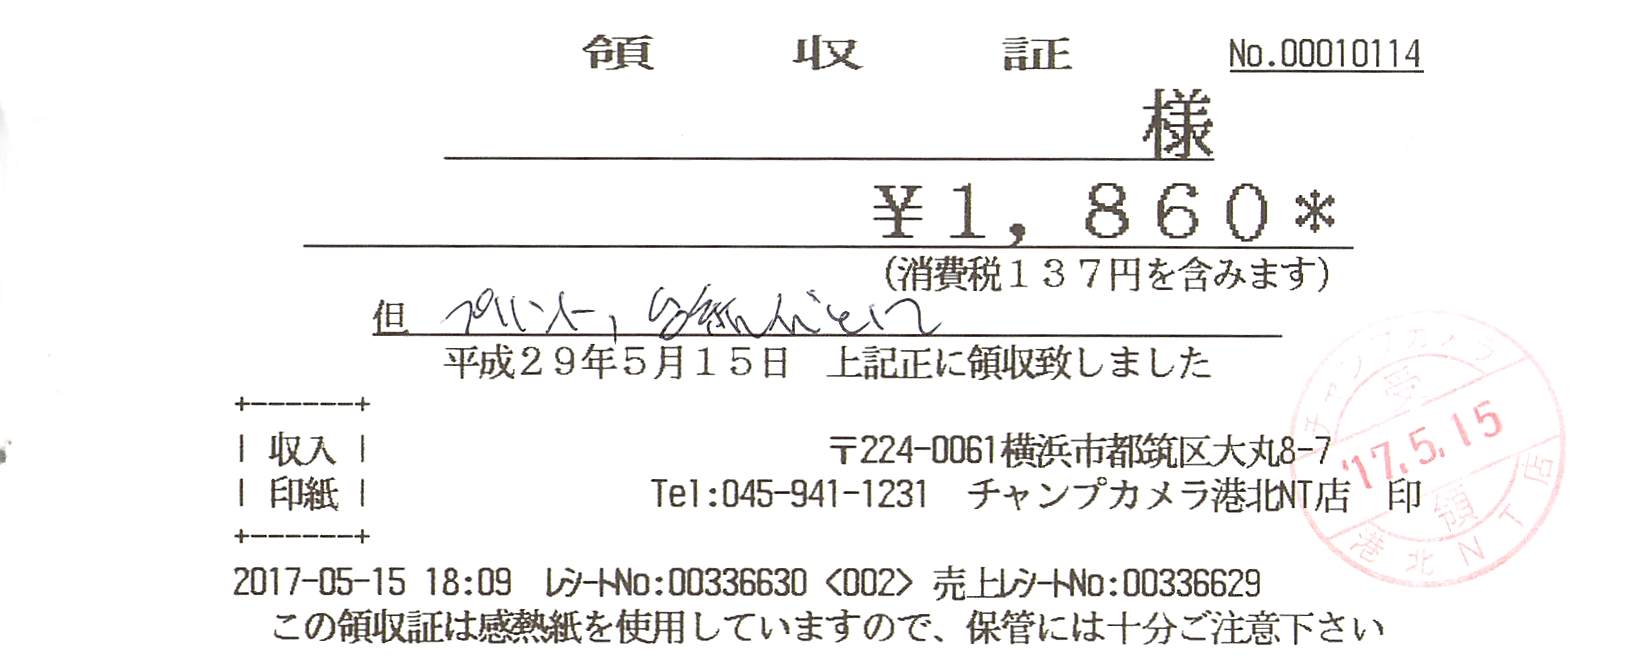 領 収 証 No.00010114
様
¥1,860*
(消費税137円を含みます)
但 プリント,台紙代として
平成29年5月15日 上記正に領収致しました
+------+
| 収入 | 〒224-0061横浜市都筑区大丸8-7
| 印紙 | Tel:045-941-1231 チャンプカメラ港北NT店 印
+------+
チャンプカメラ
受
'17.5.15
領
港北NT店
2017-05-15 18:09 レシートNo:00336630 <002> 売上レシートNo:00336629
この領収証は感熱紙を使用していますので、保管には十分ご注意下さい